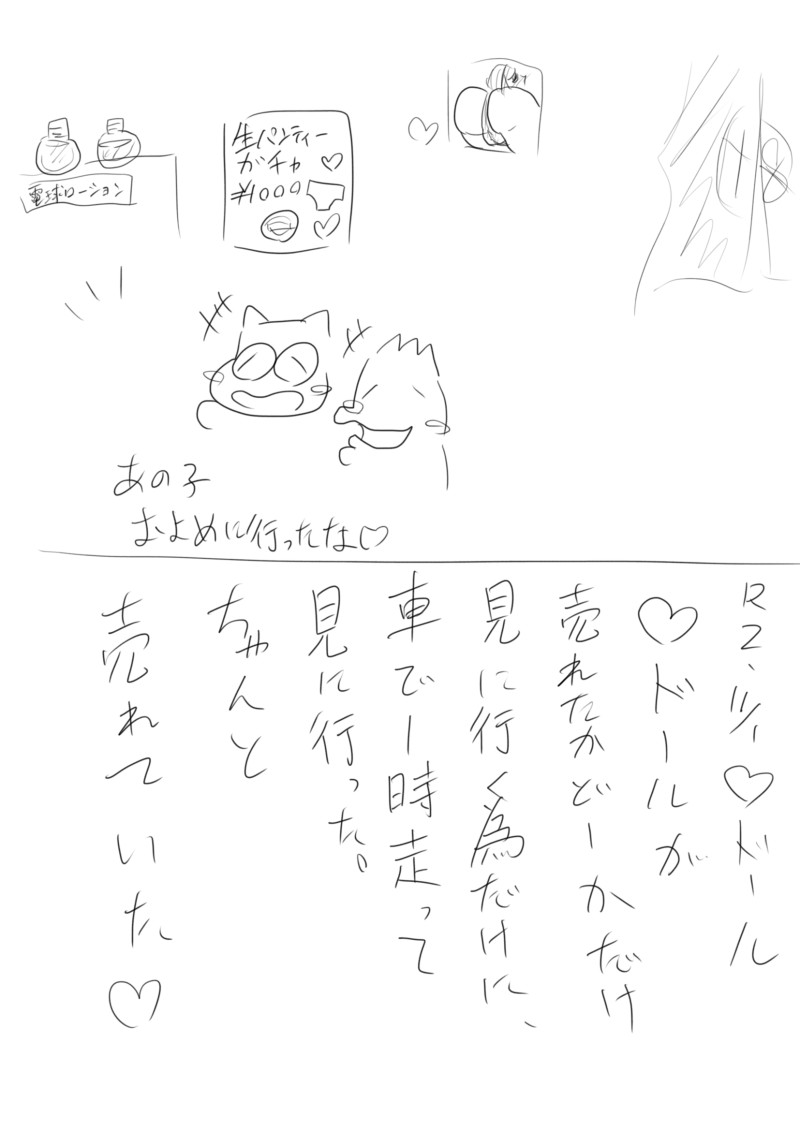 電球ローション
生パンティー
ガチャ♡
¥1000
18
あの子
およめに行ったな♡
♡ドール
♡ドールが
売れたかどーかだけ
見に行く為だけに、
車で1時走って
見に行った。
ちゃんと
売れていた♡